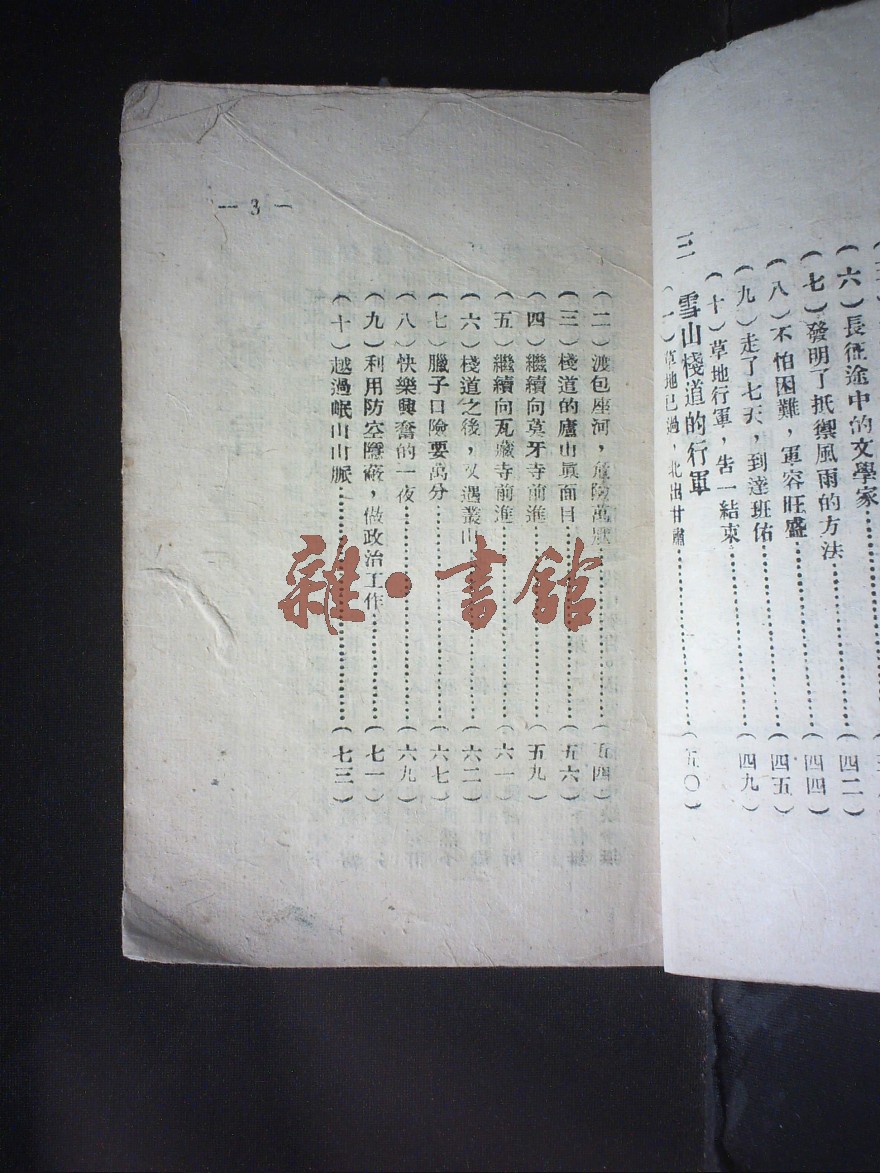 （六）長征途中的文學家………（四二）
（七）發明了抵禦風雨的方法………（四四）
（八）不怕困難，軍容旺盛………（四五）
（九）走了七天，到達班佑………（四九）
（十）草地行軍，告一結束………
三 雪山棧道的行軍
（一）草地已過，北出甘肅………（五〇）
（二）渡包座河，危險萬狀………（五四）
（三）棧道的廬山眞面目………（五六）
（四）繼續向莫牙寺前進………（五九）
（五）繼續向瓦藏寺前進………（六一）
（六）棧道之後，又遇叢山………（六二）
（七）臘子口險要萬分………（六七）
（八）快樂興奮的一夜………（六九）
（九）利用防空隱蔽，做政治工作………（七一）
（十）越過岷山山脈………（七三）
— 3 —
雜·書館